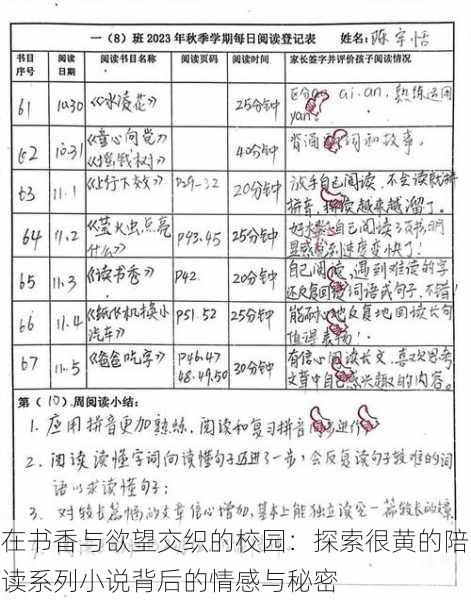 一（8）班 2023 年秋季学期每日阅读登记表 姓名：陈宇恬
书目序号 阅读日期 阅读书目名称 阅读页码 阅读时间 家长签字并评价孩子阅读情况
61 10.30 《冰凌花》 25分钟 ai.an，熟练运用
62 10.31 《童心向党》 40分钟 背诵 词和故事。
63 11.1 《上行下效》 P29-32 20分钟 试手自己阅读，不会读
拼音， 越来越溜了。
64 11.2 《萤火虫点亮什么》 P43.45 25分钟 自己阅读了 书，明显 速度变快了！
65 11.3 《读书香》 P42 20分钟 自己阅读，遇到难读的字
还反复回读词语或句子，不错！
66 11.4 《纸飞机换小汽车》 P51.52 25分钟 能耐心地反复地回读长句
值得表扬！
67 11.5 《爸爸吃字》 P46.47 48.49.50 30分钟 有信心阅读长文，喜欢思考
文章中自己感兴趣的内容。
第（10）周阅读小结：
1. 应用拼音更加熟练，阅读和复习拼音同步进行
2. 阅读读懂字词向读懂句子迈进了一步，会反复读句子较难的词
语以求读懂句子；
3. 对较长篇幅的文章信心增加，基本上能独立读完一篇较长的文章
在书香与欲望交织的校园：探索很黄的陪
读系列小说背后的情感与秘密